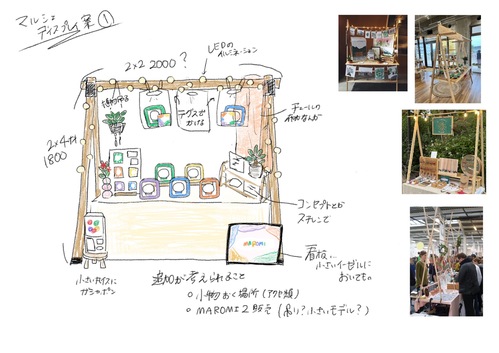 マルシェ
ディスプレイ案①
LEDの
イルミネーション
2×2 2000?
テグスで
かける
チュールの
2×4材
1800
コンセプトとか
ステレンで
MAROMI
看板、
小さいイーゼルに
おいても
小さいイスに
ガシャポン
追加が考えられること
○小物おく場所(アクセ類)
○MAROMI2販売(吊り?小さいモデル?)